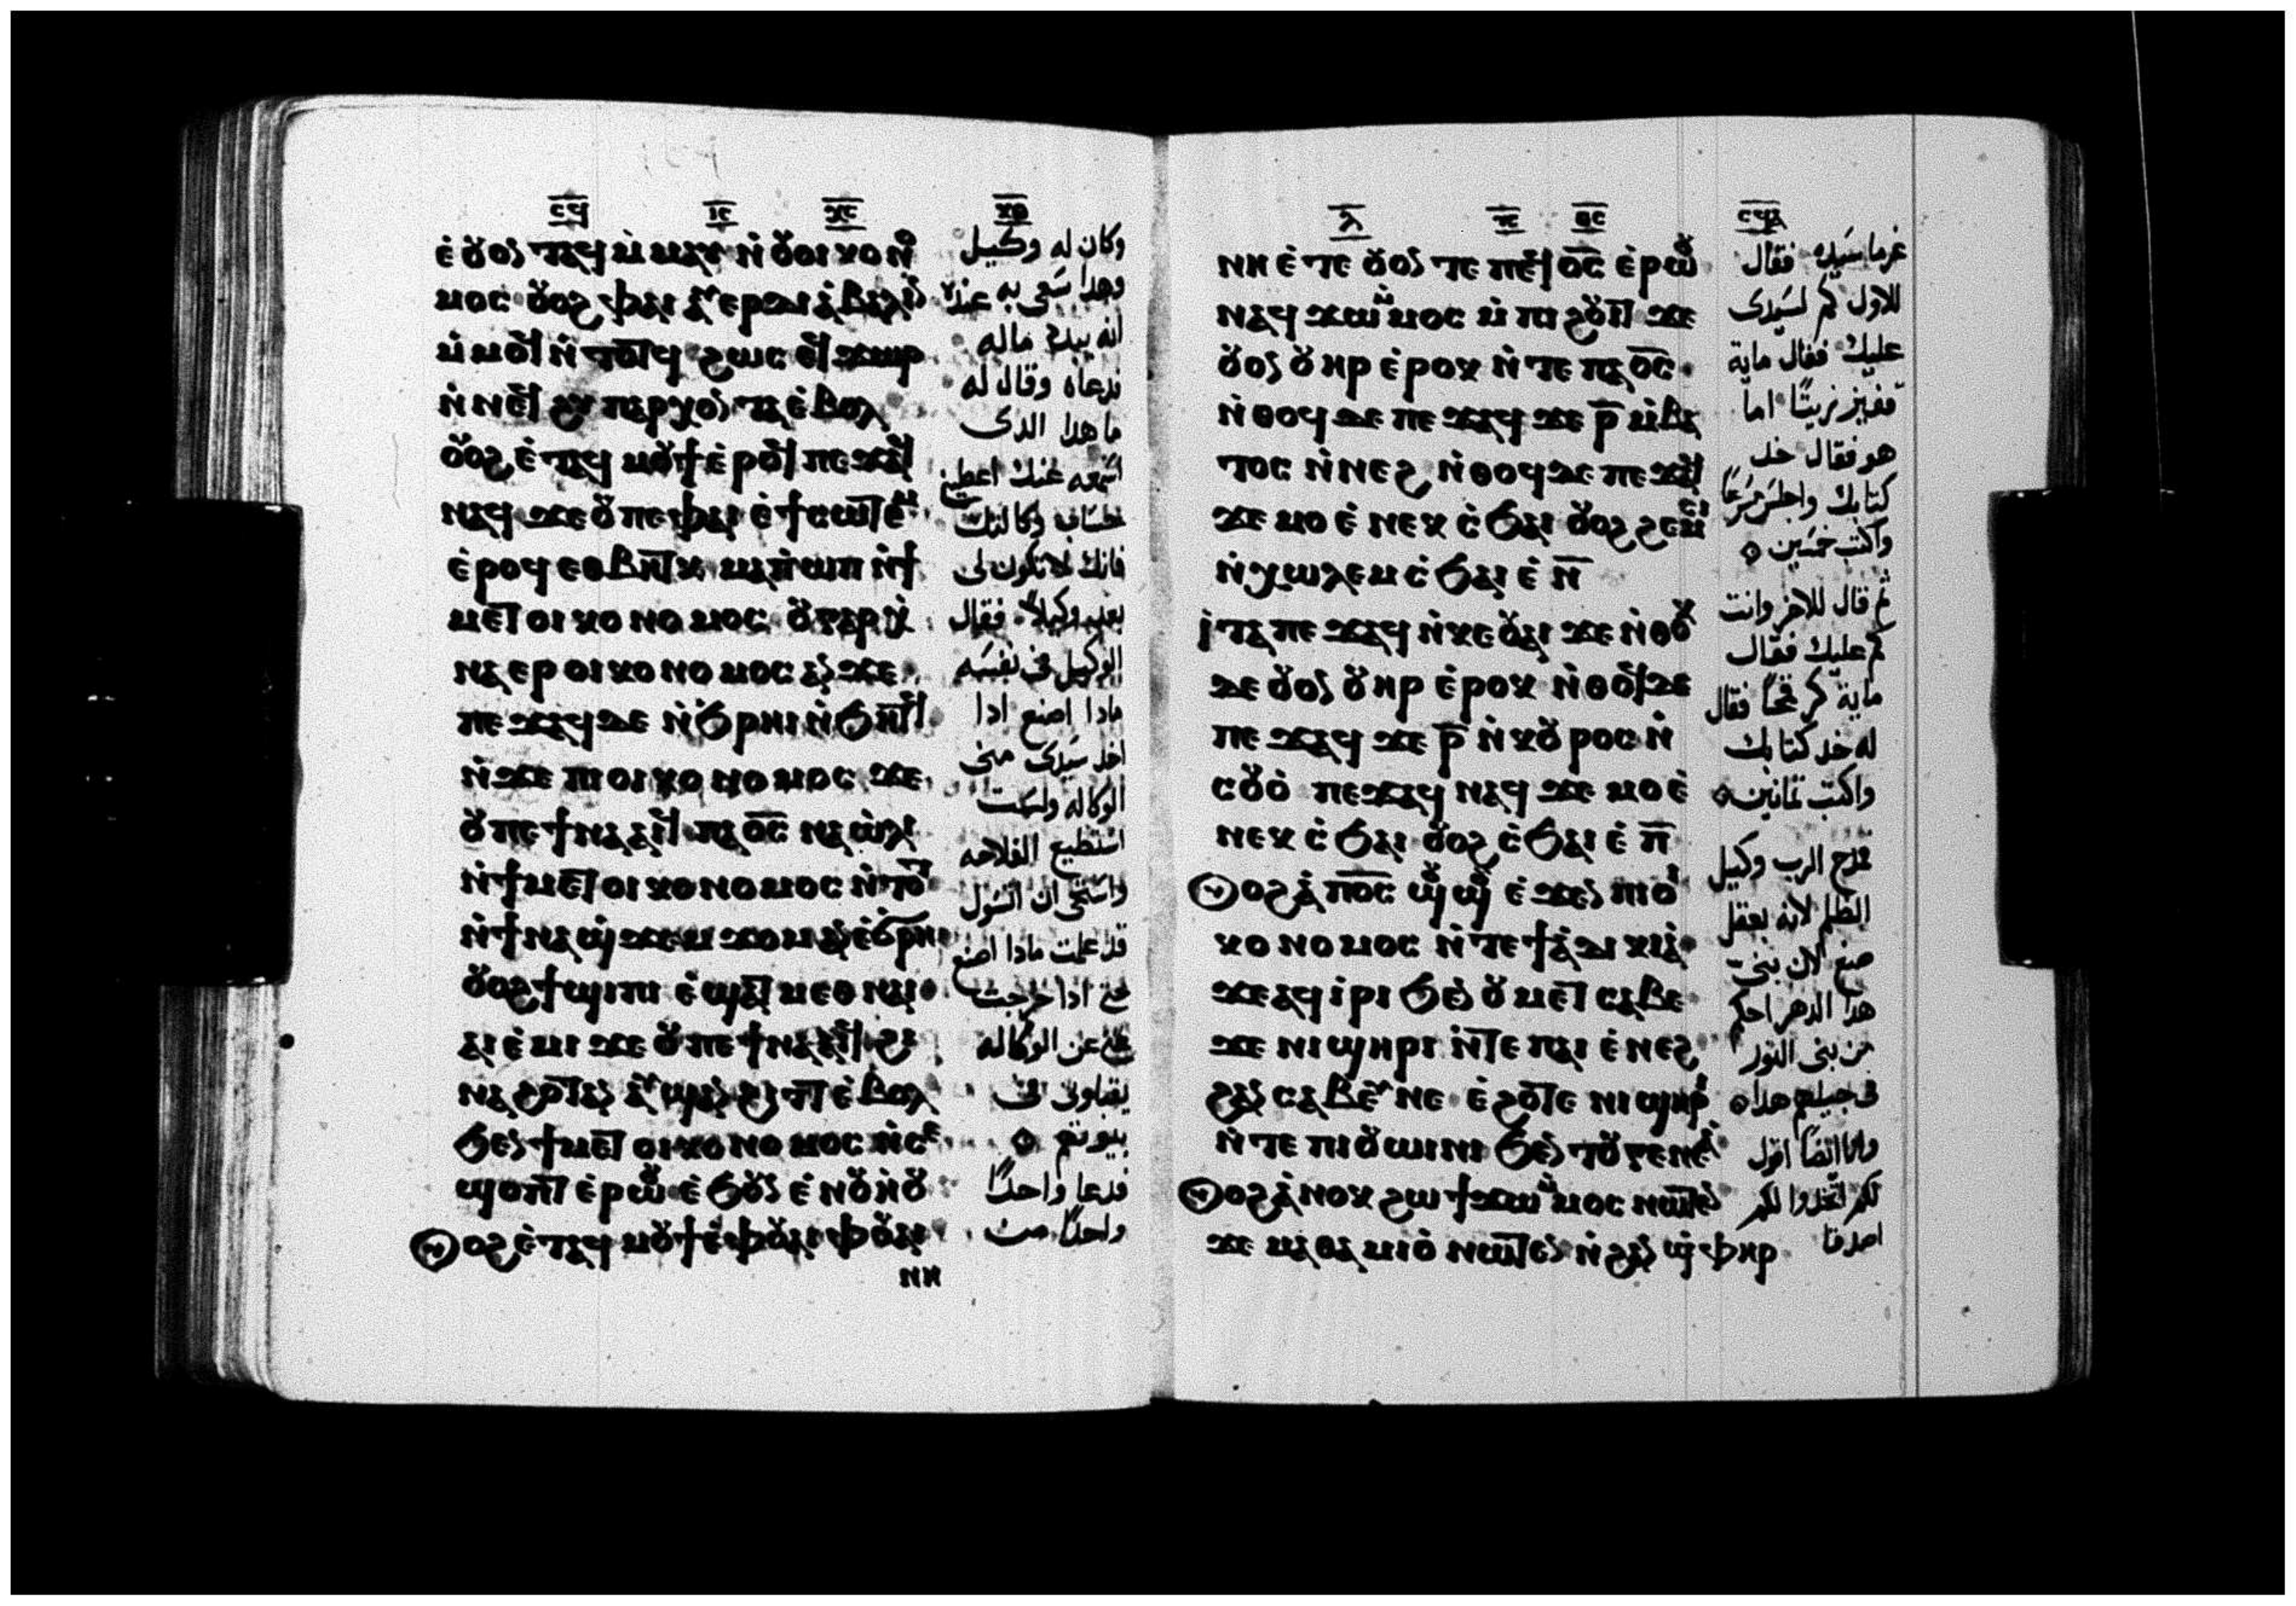 ⲥϥ ⲓⲥ ⲭⲥ ⲕⲑ
ⲉ̀ⲟⲩⲟⲛⲧⲁϥ ⲙ̀ⲙⲁⲩ ⲛ̀ⲟⲩⲟⲓⲕⲟⲛⲟ
ⲙⲟⲥ ⲟⲩⲟϩ ⲫⲁⲓ ⲁⲩⲉⲣⲇⲓⲁ̀ⲃⲁⲗⲓⲛ
ⲙ̀ⲙⲟϥ ⲛ̀ⲧⲟⲧϥ ϩⲱⲥ ⲉϥϫⲱⲣ
ⲛ̀ⲛⲉϥϩⲩⲡⲁⲣⲭⲟⲛⲧⲁ ⲉ̀ⲃⲟⲗ
ⲟⲩⲟϩ ⲉ̀ⲧⲁϥⲙⲟⲩϯ ⲉ̀ⲣⲟϥ ⲡⲉϫⲁϥ
ⲛⲁϥ ϫⲉ ⲟⲩ ⲡⲉ ⲫⲁⲓ ⲉ̀ϯⲥⲱⲧⲉⲙ
ⲉ̀ⲣⲟϥ ⲉⲑⲃⲏⲧⲕ ⲙⲁ ⲡ̀ⲱⲡ ⲛ̀ϯ
ⲙⲉⲧⲟⲓⲕⲟⲛⲟⲙⲟⲥ ⲟⲩ ⲅⲁⲣ ⲭ̀
ⲛⲁⲉⲣ ⲟⲓⲕⲟⲛⲟⲙⲟⲥ ⲁⲛ ϫⲉ
ⲡⲉϫⲁϥ ⲇⲉ ⲛ̀ϧⲣⲏⲓ ⲛ̀ϧⲏⲧϥ
ⲛ̀ϫⲉ ⲡⲓⲟⲓⲕⲟⲛⲟⲙⲟⲥ ϫⲉ
ⲟⲩ ⲡⲉϯⲛⲁⲁⲓϥ ⲡⲁⲟ̅ⲥ̅ ⲛⲁⲱ̀ⲗⲓ
ⲛ̀ϯⲙⲉⲧⲟⲓⲕⲟⲛⲟⲙⲟⲥ ⲛ̀ⲧⲟⲧ
ⲛ̀ϯⲛⲁϣ̀ϫⲉⲙϫⲟⲙ ⲁⲛ ⲉ̀ϭⲣⲏ
ⲟⲩⲟϩ ϯϣⲓⲡⲓ ⲉ̀ϣⲁⲧ ⲙⲉⲑⲛⲁⲓ
ⲁⲓⲉ̀ⲙⲓ ϫⲉ ⲟⲩ ⲡⲉϯⲛⲁⲁⲓϥ ϩⲓ
ⲛⲁ ϩⲟⲧⲁⲛ ⲁⲩϣⲁⲛϩⲓⲧⲧ ⲉ̀ⲃⲟⲗ
ϧⲉⲛ ϯⲙⲉⲧⲟⲓⲕⲟⲛⲟⲙⲟⲥ ⲛ̀ⲥⲉ
ϣⲟⲡⲧ ⲉ̀ⲣⲱⲟⲩ ⲉ̀ϧⲟⲩⲛ ⲉ̀ⲛⲟⲩⲏ̀ⲟⲩ
ⲟⲩⲟϩ ⲉ̀ⲧⲁϥⲙⲟⲩϯ ⲉ̀ⲫⲟⲩⲁⲓ ⲫⲟⲩⲁⲓ
ⲛⲏ
وكان له وكيل
وهدا سعى به عنده
انه يبدد ماله
فدعاه وقال له
ما هدا الدى
اسمعه عنك اعطينى
حساب وكالتك
فانك لا تكون لى
بعد وكيلاً فقال
الوكيل فى نفسه
مادا اصنع ادا
اخد سيدى منى
الوكاله ولست
استطيع الفلاحه
واستحى ان اتسول
قد علمت مادا اصنع
حتى ادا خرجت
عن الوكاله
يقبلونى فى
بيوتهم
فدعا واحداً
واحداً من
ⲗ ⲡⲥ ⲑⲥ ⲥϥⲁ
ⲛⲏ ⲉ̀ⲧⲉ ⲟⲩⲟⲛⲧⲉ ⲡⲉϥⲟ̅ⲥ̅ ⲉ̀ⲣⲱⲟⲩ
ⲛⲁϥϫⲱ ⲙ̀ⲙⲟⲥ ⲙ̀ⲡⲓϩⲟⲩⲓⲧ ϫⲉ
ⲟⲩⲟⲛ ⲟⲩⲏⲣ ⲉ̀ⲣⲟⲕ ⲛ̀ⲧⲉ ⲡⲁⲟ̅ⲥ̅
ⲛ̀ⲑⲟϥ ⲇⲉ ⲡⲉϫⲁϥ ϫⲉ ⲣ̅ ⲙ̀ⲃⲁ
ⲧⲟⲥ ⲛ̀ⲛⲉϩ ⲛ̀ⲑⲟϥ ⲇⲉ ⲡⲉϫⲁϥ
ϫⲉ ⲙⲟ ⲉ̀ⲛⲉⲕⲥ̀ϧⲁⲓ ⲟⲩⲟϩ ϩⲉⲙⲥⲓ
ⲛ̀ⲭⲱⲗⲉⲙ ⲥ̀ϧⲁⲓ ⲉ̀ⲛ̅
ⲓⲧⲁ ⲡⲉϫⲁϥ ⲛ̀ⲕⲉⲟⲩⲁⲓ ϫⲉ ⲛ̀ⲑⲟⲕ
ⲇⲉ ⲟⲩⲟⲛ ⲟⲩⲏⲣ ⲉ̀ⲣⲟⲕ ⲛ̀ⲑⲟϥ ⲇⲉ
ⲡⲉϫⲁϥ ϫⲉ ⲣ̅ ⲛ̀ⲕⲟⲩⲣⲟⲥ ⲛ̀
ⲥⲟⲩⲟ̀ ⲡⲉϫⲁϥ ⲛⲁϥ ϫⲉ ⲙⲟ ⲉ̀
ⲛⲉⲕⲥ̀ϧⲁⲓ ⲟⲩⲟϩ ⲥ̀ϧⲁⲓ ⲉ̀ⲡ̅
ⲟⲩⲟϩ ⲁ̀ ⲡⲟ̅ⲥ̅ ϣⲟⲩϣⲟⲩ ⲉ̀ϫⲉⲛ ⲡⲓⲟⲓ
ⲕⲟⲛⲟⲙⲟⲥ ⲛ̀ⲧⲉ ϯⲁ̀ⲇⲓⲕⲓⲁ̀
ϫⲉ ⲁϥⲓⲣⲓ ϧⲉⲛ ⲟⲩⲙⲉⲧⲥⲁⲃⲉ
ϫⲉ ⲛⲓϣⲏⲣⲓ ⲛ̀ⲧⲉ ⲡⲁⲓⲉ̀ⲛⲉϩ
ϩⲁⲛⲥⲁⲃⲉⲩ ⲛⲉ ⲉ̀ϩⲟⲧⲉ ⲛⲓϣⲏⲣⲓ
ⲛ̀ⲧⲉ ⲡⲓⲟⲩⲱⲓⲛⲓ ϧⲉⲛ ⲧⲟⲩⲅⲉⲛⲉⲁ̀
ⲟⲩⲟϩ ⲁ̀ⲛⲟⲕ ϩⲱ ϯϫⲱ ⲙ̀ⲙⲟⲥ ⲛⲱⲧⲉⲛ
ϫⲉ ⲙⲁⲑⲁⲙⲓⲟ̀ ⲛⲱⲧⲉⲛ ⲛ̀ϩⲁⲛϣ̀ⲫⲏⲣ
غرما سيده فقال
للاول كم لسيدى
عليك فقال ماية
قفيز زيتًا اما
هو فقال خد
كتابك واجلس مسرعًا
واكتب خمسين
ثم قال للاخر وانت
كم عليك فقال
ماية كر قمحًا فقال
له خد كتابك
واكتب تمانين
فمدح الرب وكيل
الظلم لانه بعقل
صنع لان بنى
هدا الدهر احكم
من بنى النور
فى جيلهم هدا
وانا ايضًا اقول
لكم اتخدوا لكم
اصدقا